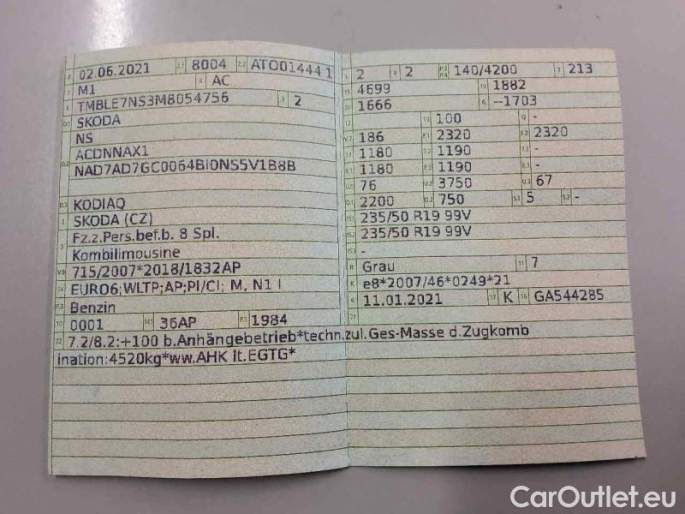 02.06.2021 8004 ATO01444 1
M1 AC
TMBLE7NS3M8054756 2
SKODA
NS
ACDNNAX1
NAD7AD7GC0064BI0NS5V1B8B
KODIAQ
SKODA (CZ)
Fz.z.Pers.bef.b. 8 Spl.
Kombilimousine
715/2007*2018/1832AP
EURO6;WLTP;AP;PI/CI; M, N1 I
Benzin
0001 36AP 1984
7.2/8.2:+100 b.Anhängebetrieb*techn.zul.Ges-Masse d.Zugkomb
ination:4520kg*ww.AHK lt.EGTG*
2 2 140/4200 213
4699 1882
1666 --1703
- 100 -
186 2320 2320
1180 1190 -
1180 1190 -
76 3750 67
2200 750 5 -
235/50 R19 99V
235/50 R19 99V
-
Grau 7
e8*2007/46*0249*21
11.01.2021 K GA544285
CarOutlet.eu